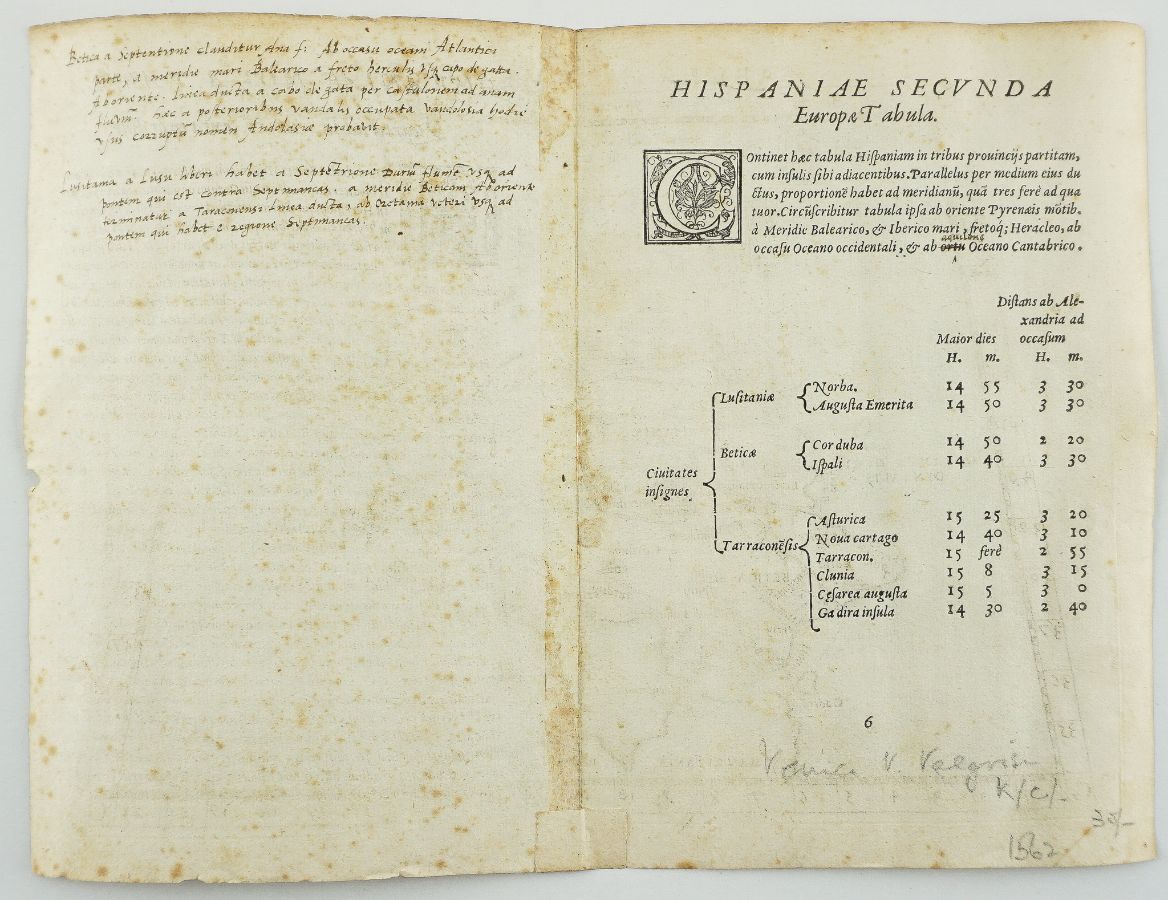 Betica a Septentrione clauditur Ana f: Ab occasu oceani Atlantici
parte, a meridie mari Balearico a freto herculis vsq capo de gatta.
Ab oriente linea ducta a cabo de gata per castulonem ad anam
fluum. hæc a posterioribus vandalis occupata vandolosia hodie
vsus corruptũ nomen Andolasiæ probavit.
Lusitania a Lusu liberi habet a Septẽtrione Duriũ flumẽ vsq ad
pontem qui est contra Septimancas. a meridie Beticam Ab oriente
terminatur a Taraconensi linea ducta, ab Oretania veteri vsq ad
pontem qui habet e regione Septimancas.
HISPANIAE SECVNDA
Europæ Tabula.
COntinet hæc tabula Hiſpaniam in tribus prouincijs partitam,
cum inſulis ſibi adiacentibus. Parallelus per medium eius du
ctus, proportionẽ habet ad meridianũ, quã tres ferè ad qua
tuor. Circũſcribitur tabula ipſa ab oriente Pyrenæis mõtib.
à Meridie Balearico, & Iberico mari, fretoq; Heracleo, ab
aquilone
occaſu Oceano occidentali, & ab ortu Oceano Cantabrico.
Diſtans ab Ale-
xandria ad
Maior dies occaſum
H. m. H. m.
Luſitaniæ Norba. 14 55 3 30
Auguſta Emerita 14 50 3 30
Beticæ Corduba 14 50 2 20
Iſpali 14 40 3 30
Ciuitates
inſignes
Tarraconẽſis Aſturica 15 25 3 20
Noua cartago 14 40 3 10
Tarracon. 15 ferè 2 55
Clunia 15 8 3 15
Ceſarea auguſta 15 5 3 0
Gadira inſula 14 30 2 40
6
Venice V. Valgrisi
K/C/-
30/-
1562